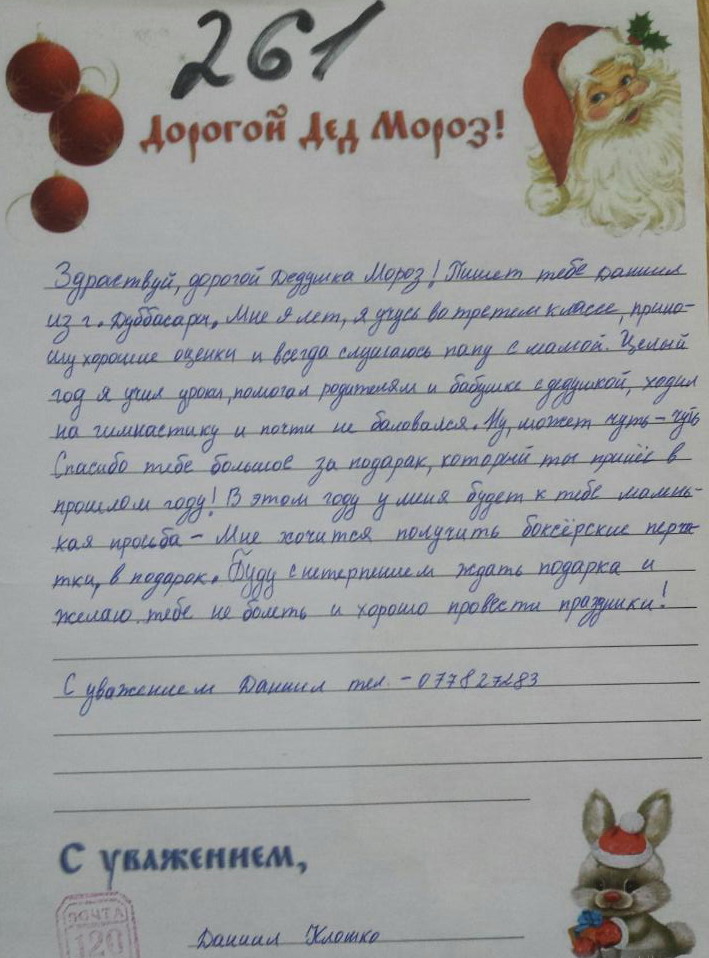 261
Дорогой Дед Мороз!
Здраствуй, дорогой Дедушка Мороз! Пишет тебе Даниил
из г. Дуббасары. Мне 9 лет, я учусь во третем классе, прино-
шу хорошие оценки и всегда слушаюсь папу с мамой. Целый
год я учил уроки, помогал родителям и бабушке с дедушкой, ходил
на гимнастику и почти не баловался. Ну, может чуть-чуть
Спасибо тебе большое за подарак, который ты принёс в
прошлом году! В этом году у меня будет к тебе малень-
кая проиьба - Мне хочится получить боксёрские перча-
тки, в подарок. Буду с нетерпением ждать подарка и
желаю тебе не болеть и хорошо провести праздники!
С уважением Даниил тел. - 077827283
С уважением,
ПОЧТА
120
Даниил Клошко